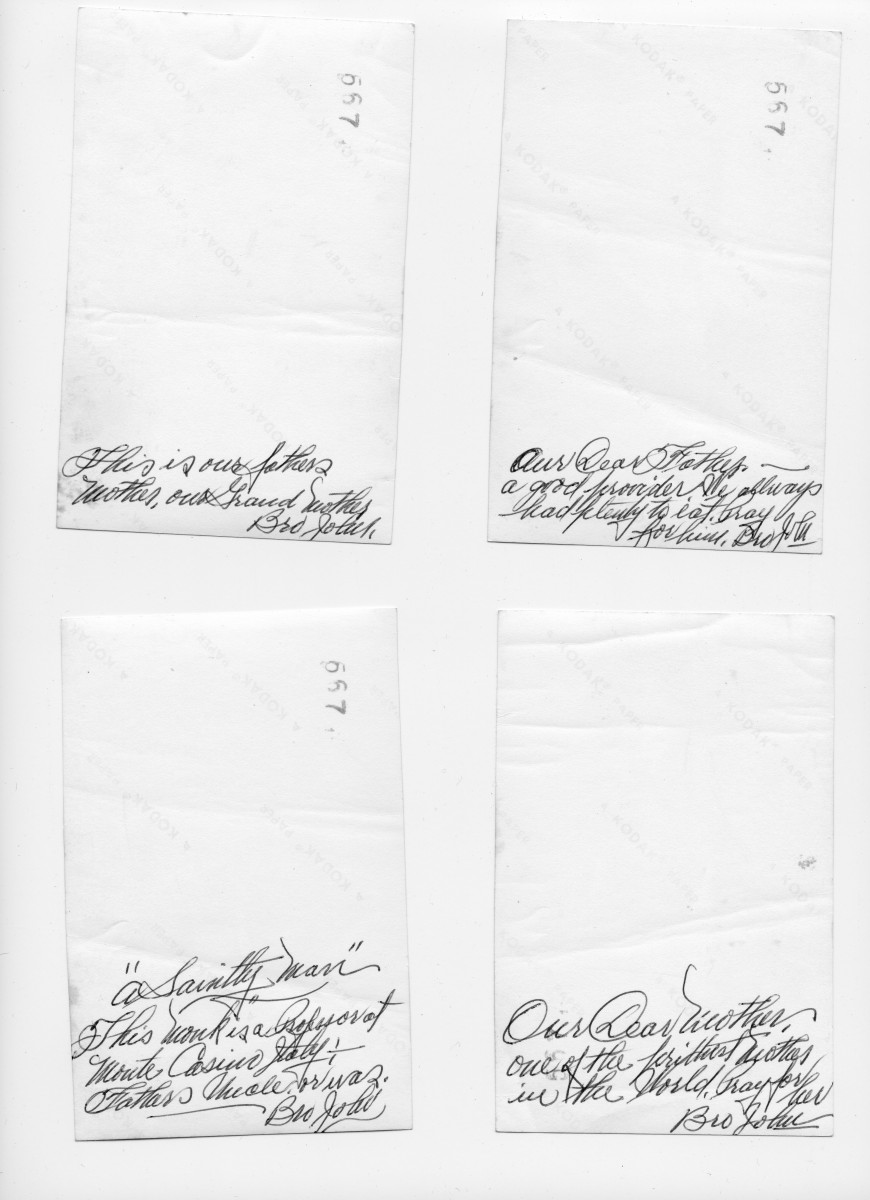 667
This is our fathers
Mother, our Grand Mother
Bro John.
667
Our Dear Father
a good provider. We always
had plenty to eat. Pray
for him. Bro John
667
"a Saintly Man"
This Monk is a Professor at
Monte Casino Italy
Fathers Uncle. or was.
Bro John
Our Dear Mother,
one of the prettiest Mother
in the World. Pray for
her
Bro John
A KODAK PAPER